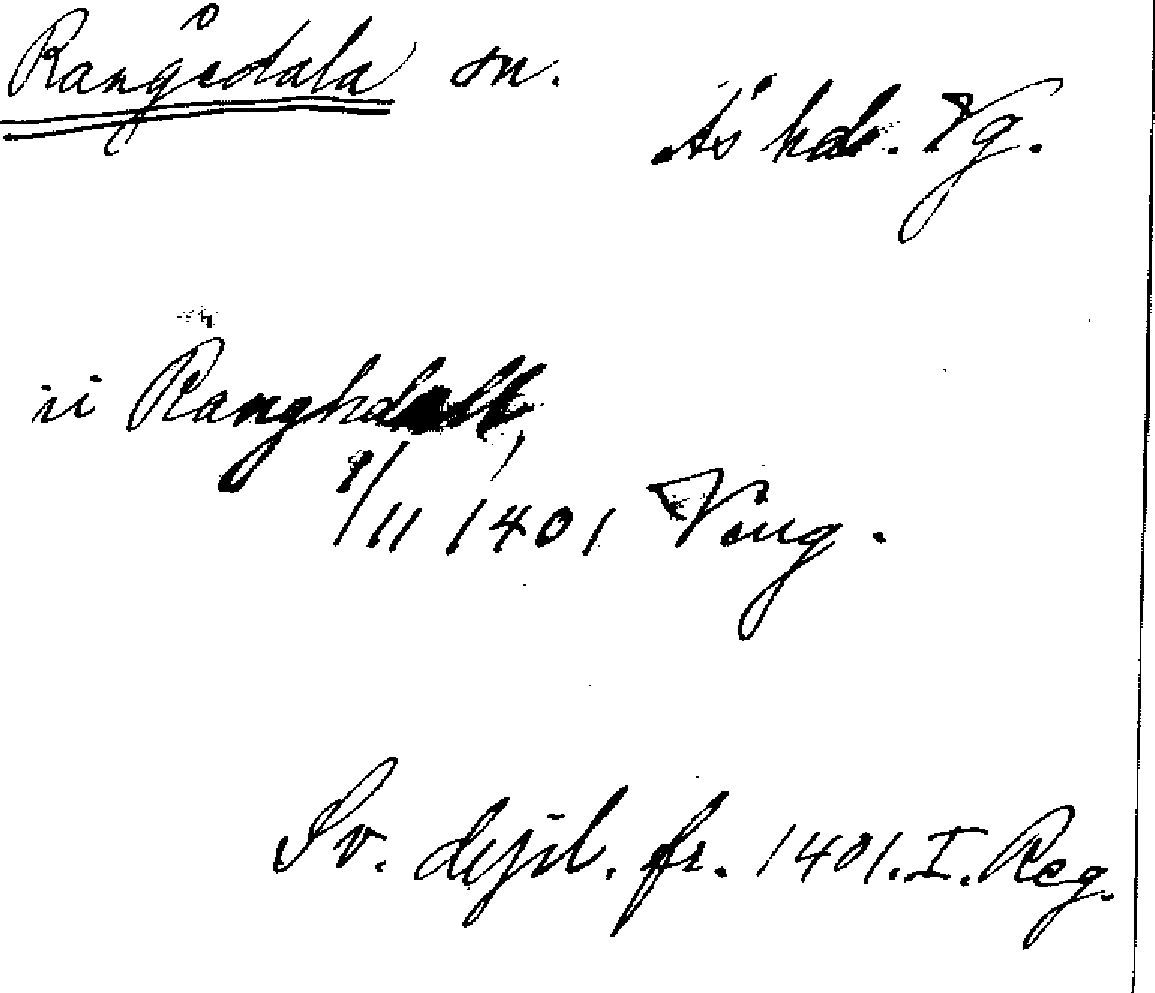 Rångedala sn.
Ås hd. Vg.
ii Ranghdall,
9/11 1401 Vang.
Sv. dipl. fr. 1401. I. Reg.